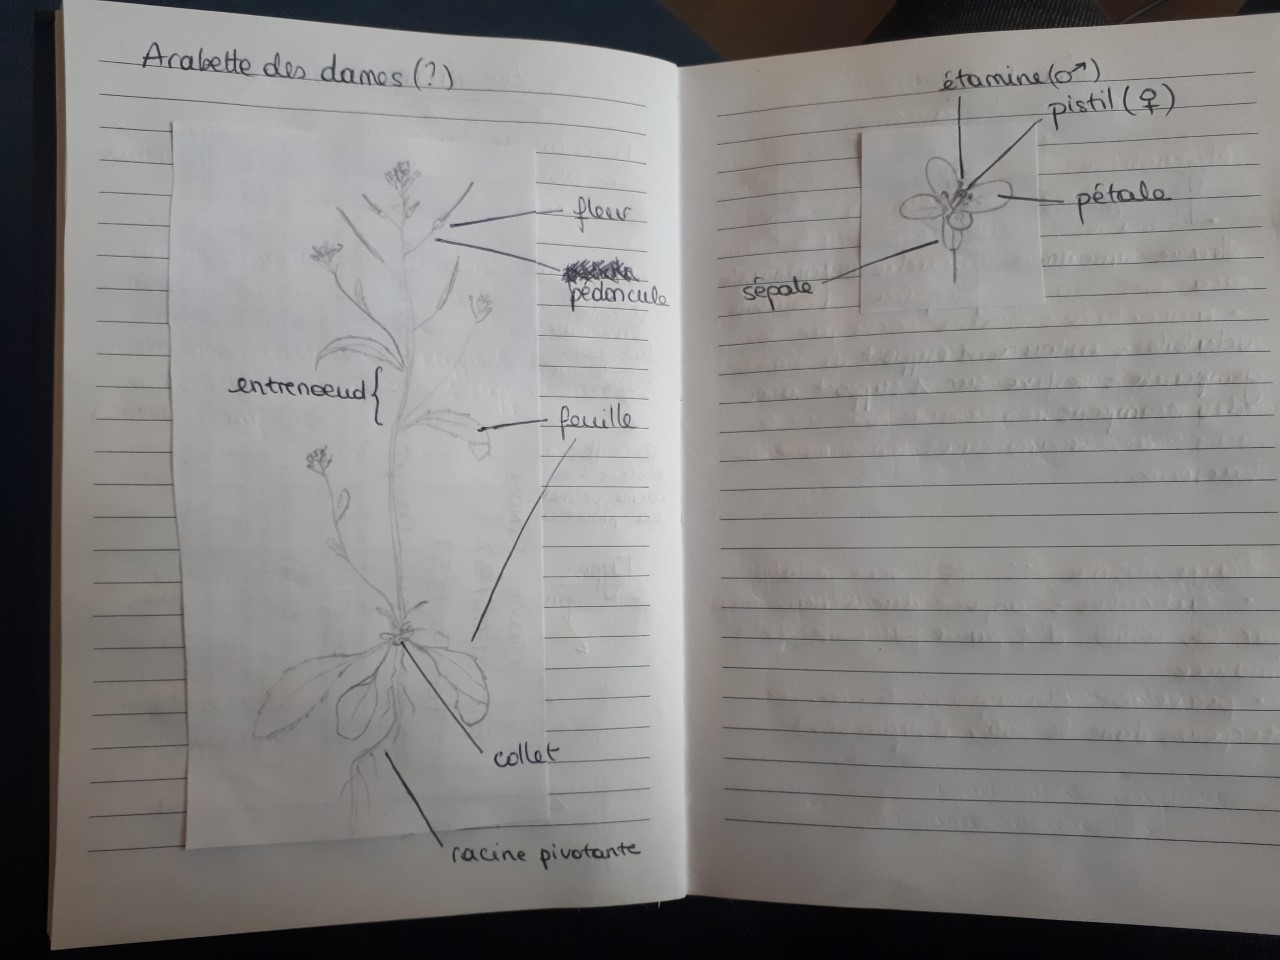 Arabette des dames (?)
fleur
pédoncule
entrenoeud
feuille
collet
racine pivotante
étamine (♂)
pistil (♀)
pétale
sépale